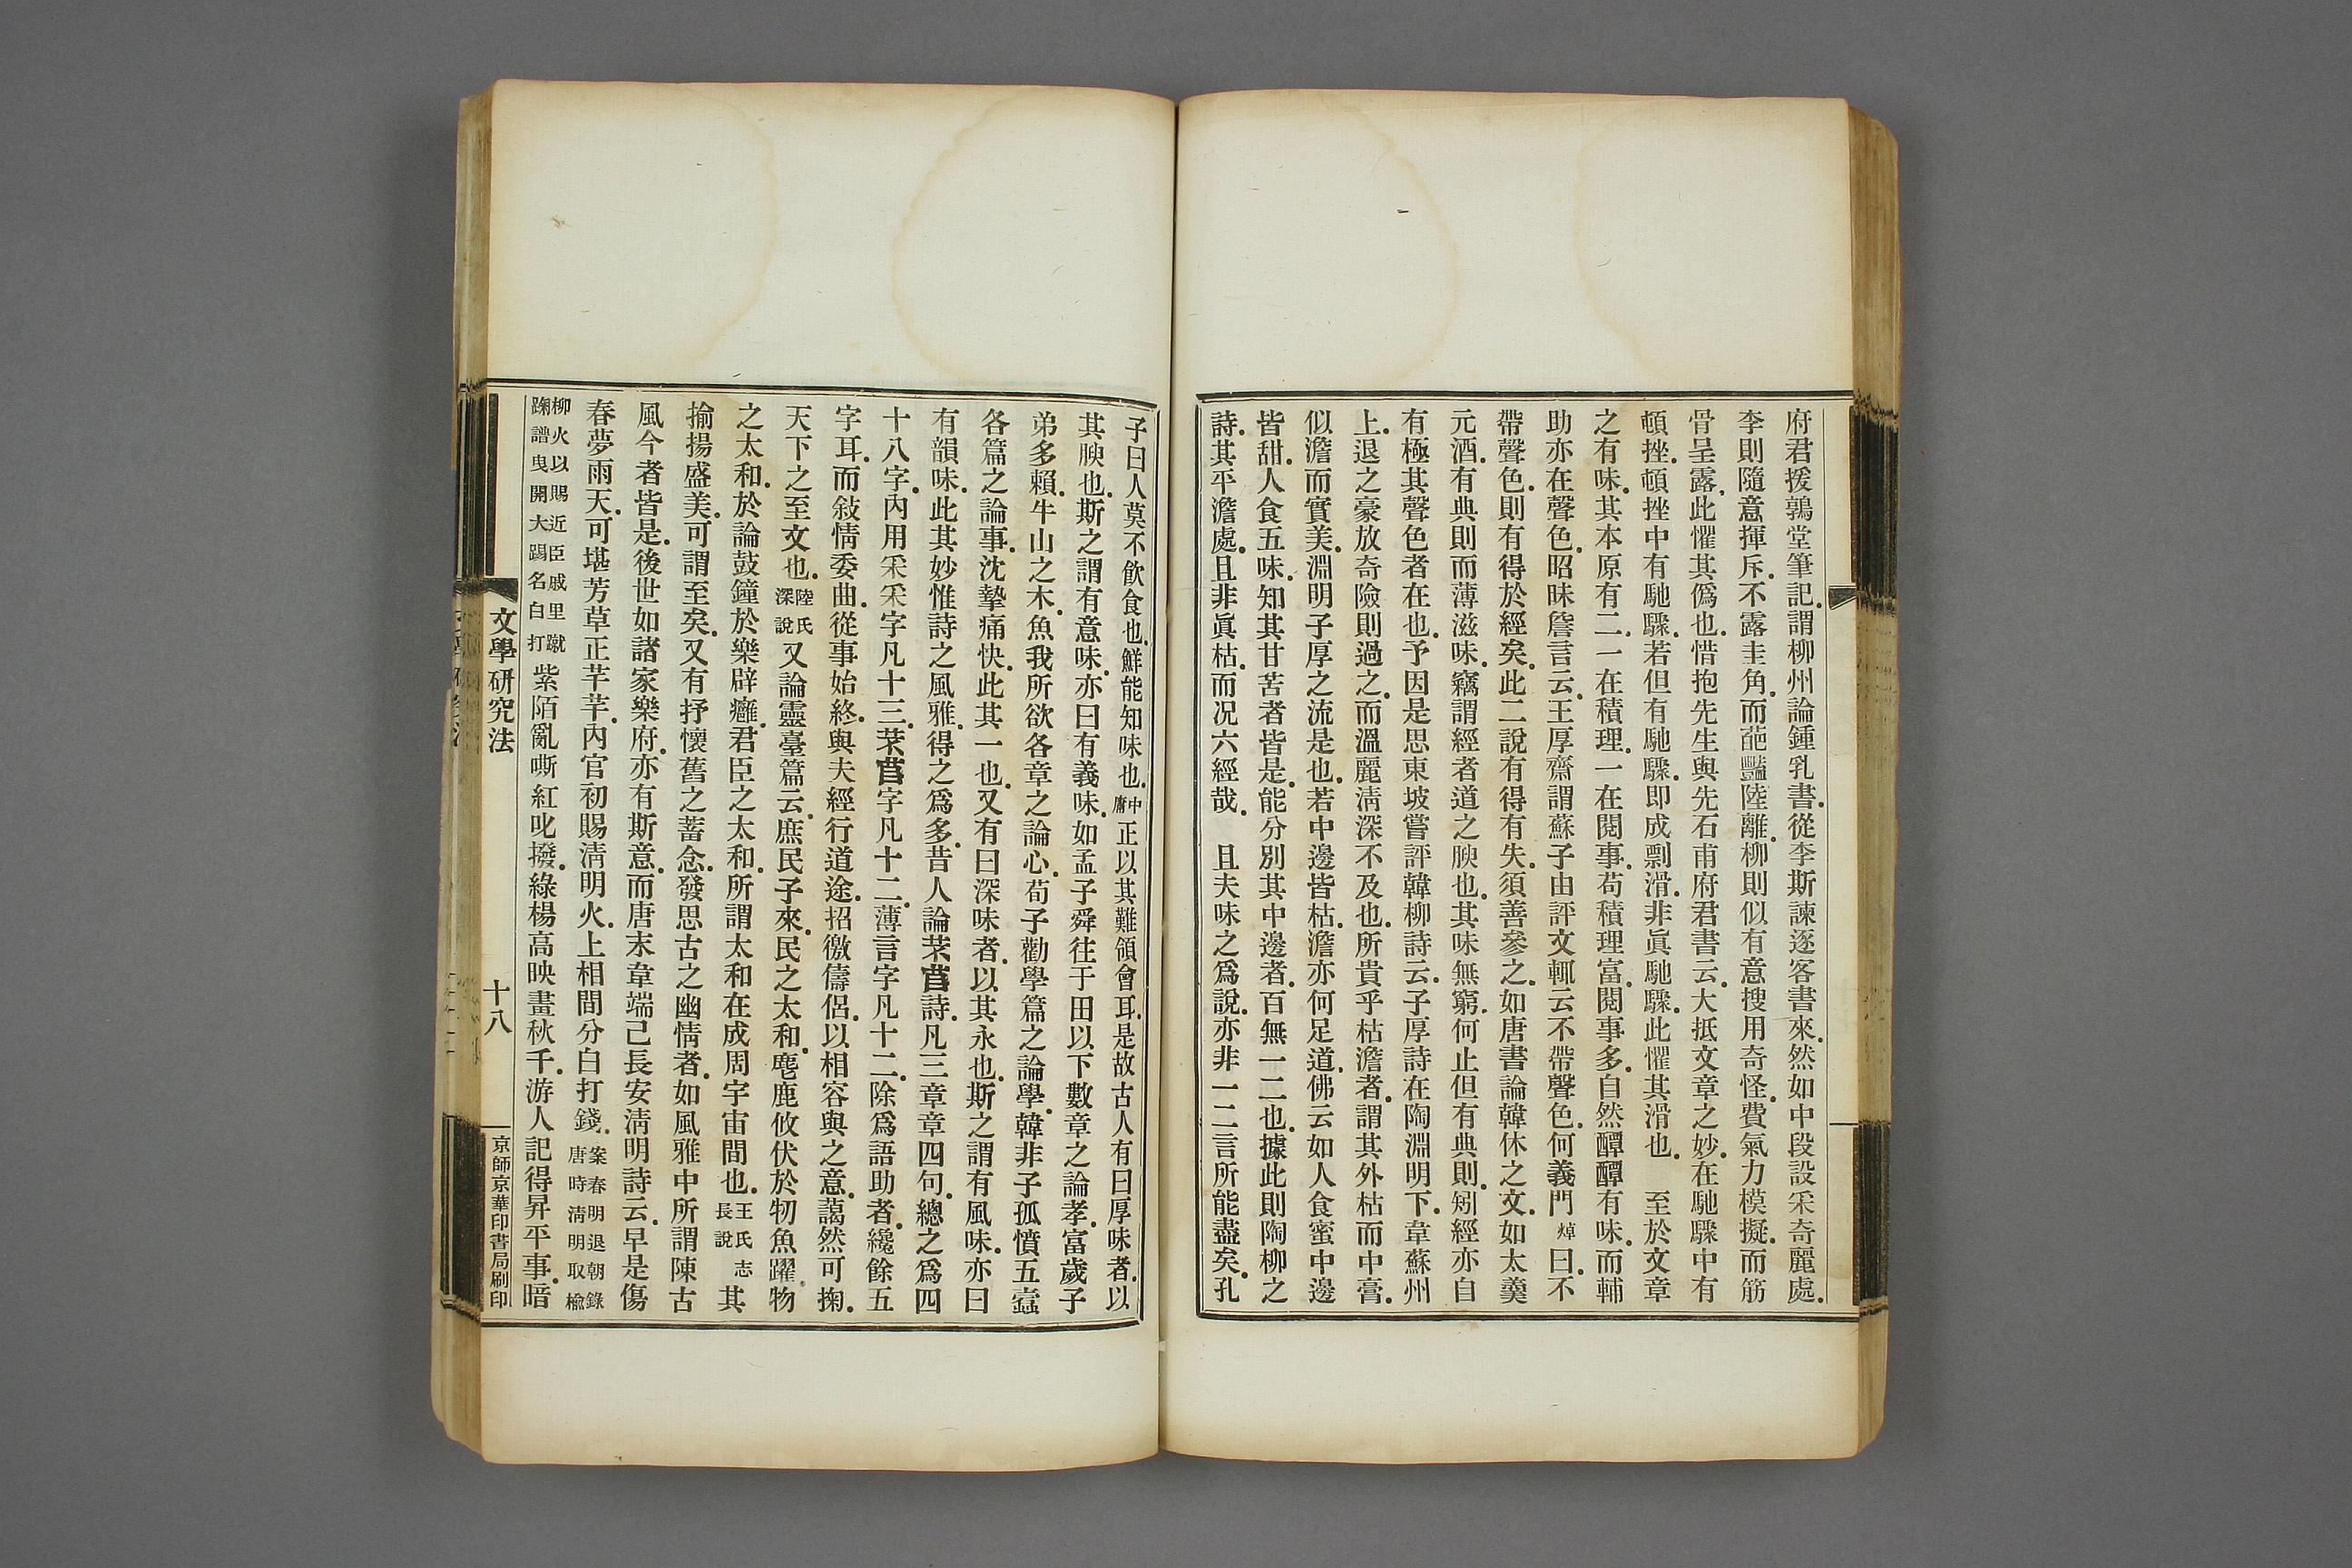 府君援鶉堂筆記.謂柳州論鍾乳書.從李斯諫逐客書來.然如中段設采奇麗處.
李則隨意揮斥.不露圭角.而葩豔陸離.柳則似有意搜用奇怪.費氣力模擬.而筋
骨呈露.此懼其僞也.惜抱先生與先石甫府君書云.大抵文章之妙.在馳驟中有
頓挫.頓挫中有馳驟.若但有馳驟.即成剽滑.非眞馳驟.此懼其滑也　至於文章
之有味.其本原有二.一在積理.一在閱事.苟積理富.閱事多.自然醰醰有味.而輔
助亦在聲色.昭昧詹言云.王厚齋謂蘇子由評文輒云不帶聲色.何義門焯曰.不
帶聲色.則有得於經矣.此二說有得有失.須善參之.如唐書論韓休之文.如太羹
元酒.有典則而薄滋味.竊謂經者道之腴也.其味無窮.何止但有典則.矧經亦自
有極其聲色者在也.予因是思東坡嘗評韓柳詩云.子厚詩在陶淵明下.韋蘇州
上.退之豪放奇險則過之.而溫麗淸深不及也.所貴乎枯澹者.謂其外枯而中膏.
似澹而實美.淵明子厚之流是也.若中邊皆枯.澹亦何足道.佛云如人食蜜中邊
皆甜.人食五味.知其甘苦者皆是.能分別其中邊者.百無一二也.據此則陶柳之
詩.其平澹處.且非眞枯.而况六經哉.　且夫味之爲說.亦非一二言所能盡矣.孔
子曰人莫不飮食也.鮮能知味也.中庸正以其難領會耳.是故古人有曰厚味者.以
其腴也.斯之謂有意味.亦曰有義味.如孟子舜往于田以下數章之論孝.富歲子
弟多賴.牛山之木.魚我所欲各章之論心.荀子勸學篇之論學.韓非子孤憤五蠹
各篇之論事.沈摯痛快.此其一也.又有曰深味者.以其永也.斯之謂有風味.亦曰
有韻味.此其妙惟詩之風雅.得之爲多.昔人論芣苢詩.凡三章章四句.總之爲四
十八字.內用采采字凡十三.芣苢字凡十二.薄言字凡十二.除爲語助者.纔餘五
字耳.而敍情委曲.從事始終.與夫經行道途.招徼儔侶.以相容與之意.藹然可掬.
天下之至文也.陸氏深說又論靈臺篇云.庶民子來.民之太和.麀鹿攸伏於牣魚躍.物
之太和.於論鼓鐘於樂辟廱.君臣之太和.所謂太和在成周宇宙間也.王氏志長說其
揄揚盛美.可謂至矣.又有抒懷舊之蓄念.發思古之幽情者.如風雅中所謂陳古
風今者皆是.後世如諸家樂府.亦有斯意.而唐末韋端己長安淸明詩云.早是傷
春夢雨天.可堪芳草正芊芊.內官初賜淸明火.上相間分白打錢.案春明退朝錄唐時淸明取楡
柳火以賜近臣戚里蹴踘譜曳開大踢名白打紫陌亂嘶紅叱撥.綠楊高映畫秋千.游人記得昇平事.暗
文學研究法
十八
京師京華印書局刷印